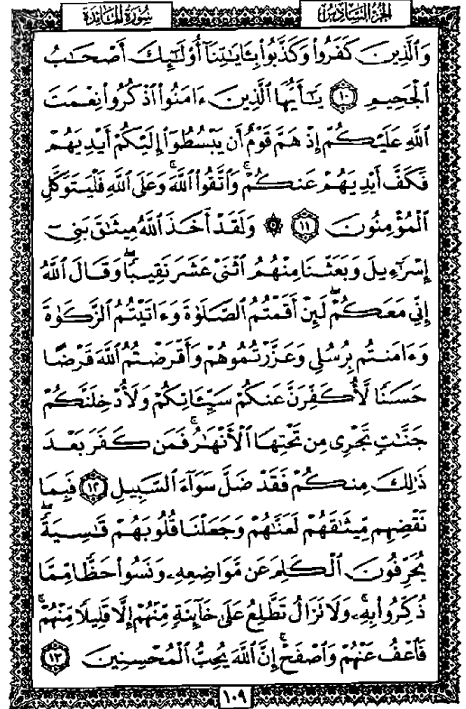 الجزء السادس سورة المائدة
وَالَّذِينَ كَفَرُوا وَكَذَّبُوا بِـَٔايَـٰتِنَآ أُو۟لَـٰٓئِكَ أَصْحَـٰبُ
الْجَحِيمِ ١٠ يَـٰٓأَيُّهَا الَّذِينَ ءَامَنُوا اذْكُرُوا نِعْمَتَ
اللَّهِ عَلَيْكُمْ إِذْ هَمَّ قَوْمٌ أَن يَبْسُطُوٓا إِلَيْكُمْ أَيْدِيَهُمْ
فَكَفَّ أَيْدِيَهُمْ عَنكُمْ ۖ وَاتَّقُوا اللَّهَ ۚ وَعَلَى اللَّهِ فَلْيَتَوَكَّلِ
الْمُؤْمِنُونَ ١١ ۞ وَلَقَدْ أَخَذَ اللَّهُ مِيثَـٰقَ بَنِىٓ
إِسْرَٰٓءِيلَ وَبَعَثْنَا مِنْهُمُ اثْنَىْ عَشَرَ نَقِيبًا ۖ وَقَالَ اللَّهُ
إِنِّى مَعَكُمْ ۖ لَئِنْ أَقَمْتُمُ الصَّلَوٰةَ وَءَاتَيْتُمُ الزَّكَوٰةَ
وَءَامَنتُم بِرُسُلِى وَعَزَّرْتُمُوهُمْ وَأَقْرَضْتُمُ اللَّهَ قَرْضًا
حَسَنًا لَّأُكَفِّرَنَّ عَنكُمْ سَيِّـَٔاتِكُمْ وَلَأُدْخِلَنَّكُمْ
جَنَّـٰتٍ تَجْرِى مِن تَحْتِهَا الْأَنْهَـٰرُ ۚ فَمَن كَفَرَ بَعْدَ
ذَٰلِكَ مِنكُمْ فَقَدْ ضَلَّ سَوَآءَ السَّبِيلِ ١٢ فَبِمَا
نَقْضِهِم مِّيثَـٰقَهُمْ لَعَنَّـٰهُمْ وَجَعَلْنَا قُلُوبَهُمْ قَـٰسِيَةً ۖ
يُحَرِّفُونَ الْكَلِمَ عَن مَّوَاضِعِهِۦ ۙ وَنَسُوا حَظًّا مِّمَّا
ذُكِّرُوا بِهِۦ ۚ وَلَا تَزَالُ تَطَّلِعُ عَلَىٰ خَآئِنَةٍ مِّنْهُمْ إِلَّا قَلِيلًا مِّنْهُمْ ۖ
فَاعْفُ عَنْهُمْ وَاصْفَحْ ۚ إِنَّ اللَّهَ يُحِبُّ الْمُحْسِنِينَ ١٣
١٠٩